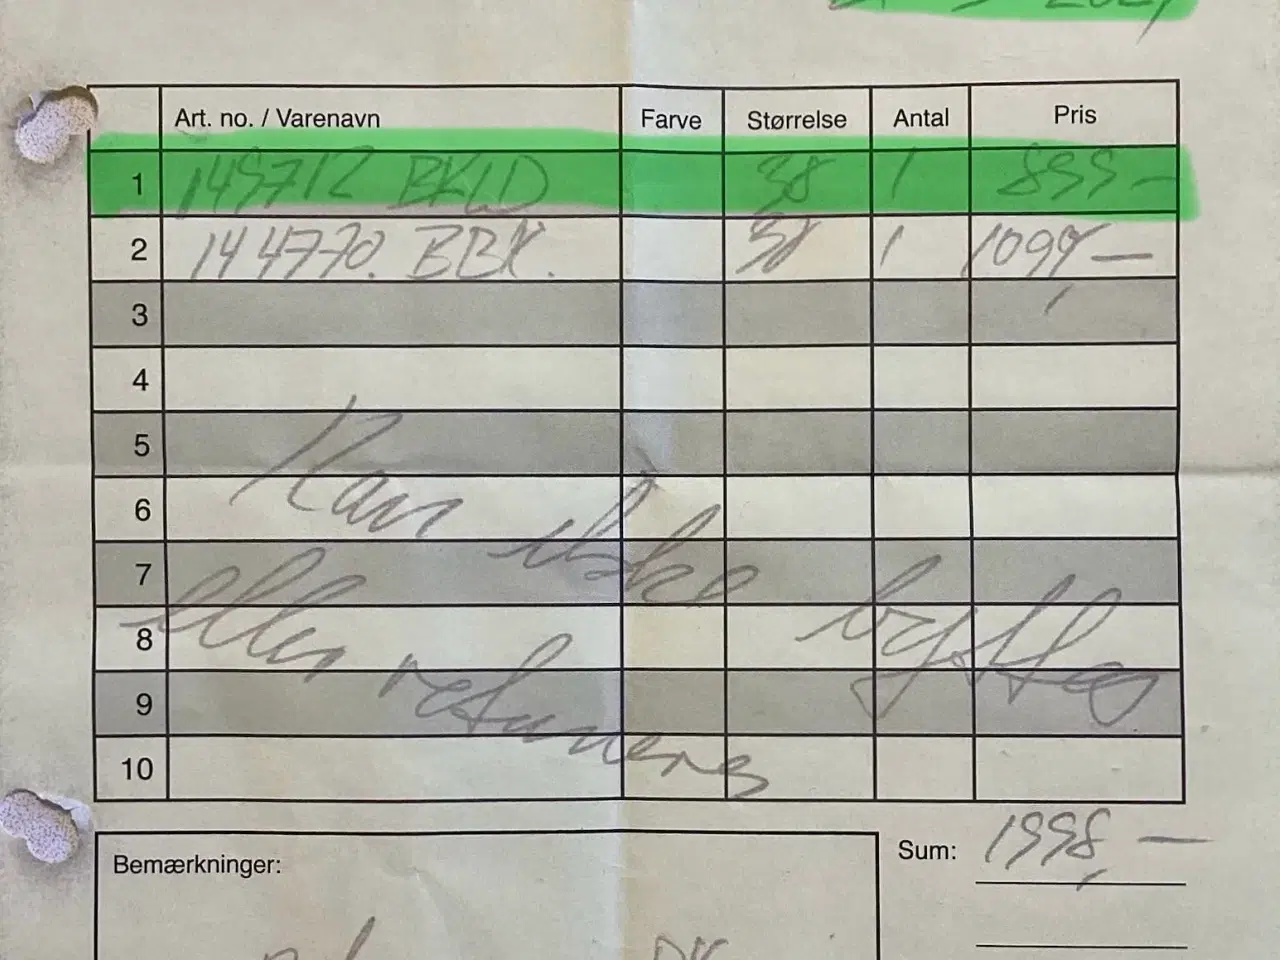 Art. no. / Varenavn Farve Størrelse Antal Pris
1 149712 BKLD 38 1 899 -
2 144770. BBK. 38 1 1099 -
3
4
5
6 Kan ikke
7
8 eller byttes
9 retuneres
10
Sum: 1998, -
Bemærkninger: